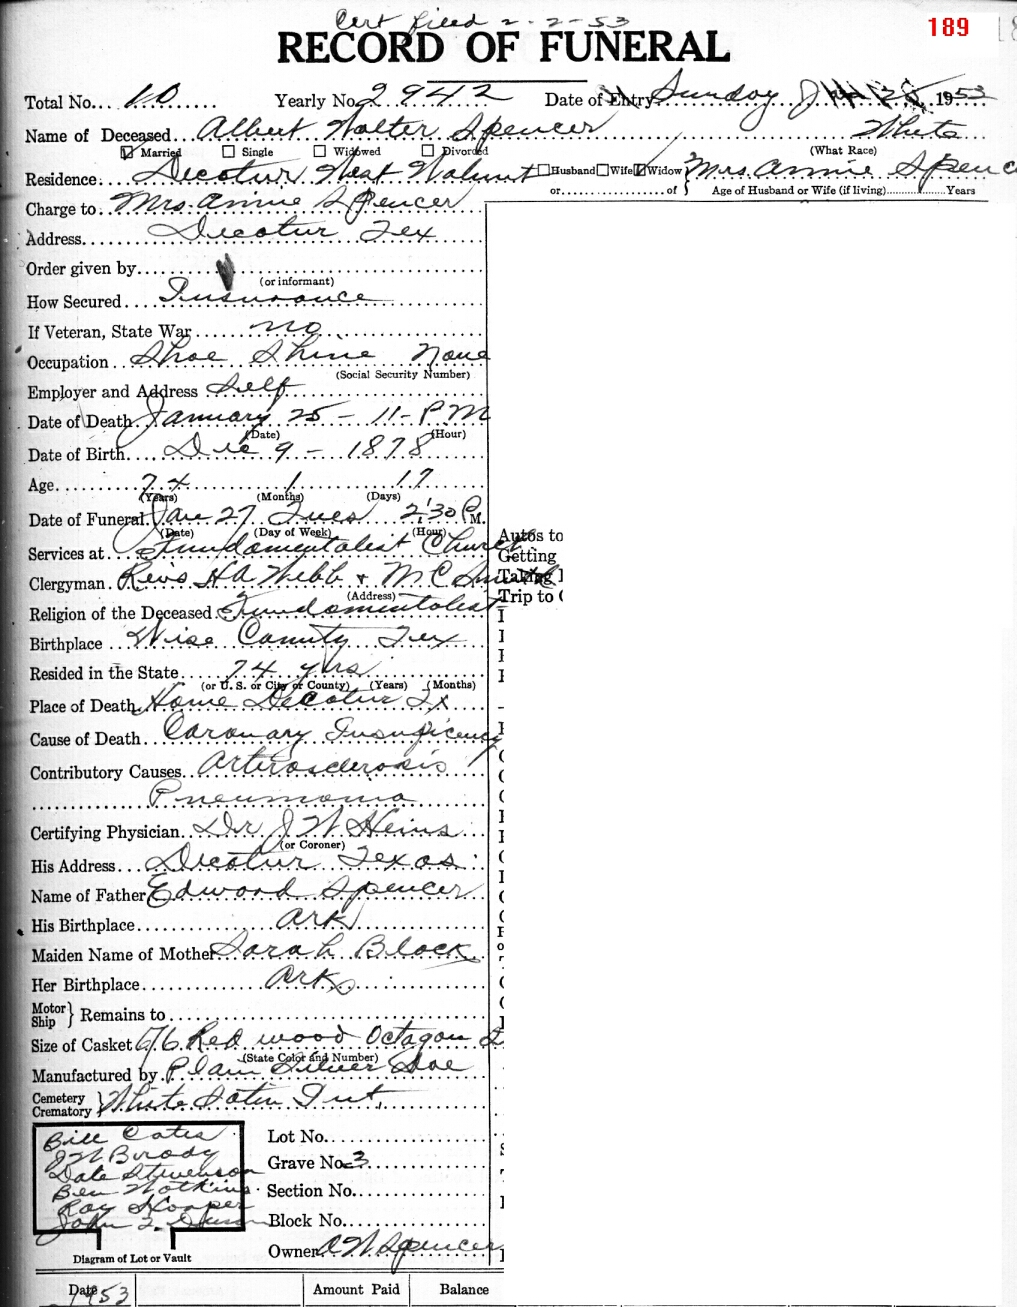 Cert filed 2-2-53
189
RECORD OF FUNERAL
Total No. 10 Yearly No. 2942 Date of Entry Sunday 1953
Name of Deceased Albert Walter Spencer White
Married Single Widowed Divorced (What Race)
Residence: Decatur West Walnut Husband Wife Widow Mrs Annie Spence
or of Age of Husband or Wife (if living) Years
Charge to Mrs Annie Spencer
Address Decatur Tex
Order given by
(or informant)
How Secured Insurance
If Veteran, State War no
Occupation Shoe Shine None
(Social Security Number)
Employer and Address Self
Date of Death January 25 - 11 - P M
(Date) (Hour)
Date of Birth Dec 9 - 1878
Age 74 1 17
(Years) (Months) (Days)
Date of Funeral Jan 27 Tues 2:30 P.M.
(Date) (Day of Week) (Hour)
Services at Fundamentalist Church
Autos to
Getting
Clergyman Revs HA Webb & M C
Taking
(Address)
Trip to
Religion of the Deceased Fundamentalist
Birthplace Wise County Tex
Resided in the State 74 yrs
(or U. S. or City or County) (Years) (Months)
Place of Death Home Decatur Tx
Cause of Death Coronary Insuficency
Contributory Causes Arterosclerosis
Pneumonia
Certifying Physician Dr J W Heins
(or Coroner)
His Address Decatur Texas
Name of Father Edward Spencer
His Birthplace Ark
Maiden Name of Mother Sarah Black
Her Birthplace Ark
Motor Ship } Remains to
Size of Casket 6/6 Red wood Octagon
(State Color and Number)
Manufactured by Plain Silver
Cemetery Crematory } White Satin Int.
Bill Cates
J W Brody
Dale Stevenson
Ben Watkins
Ray Hooper
John
Lot No.
Grave No. 3
Section No.
Block No.
Owner A W Spencer
Diagram of Lot or Vault
Date Amount Paid Balance
1953